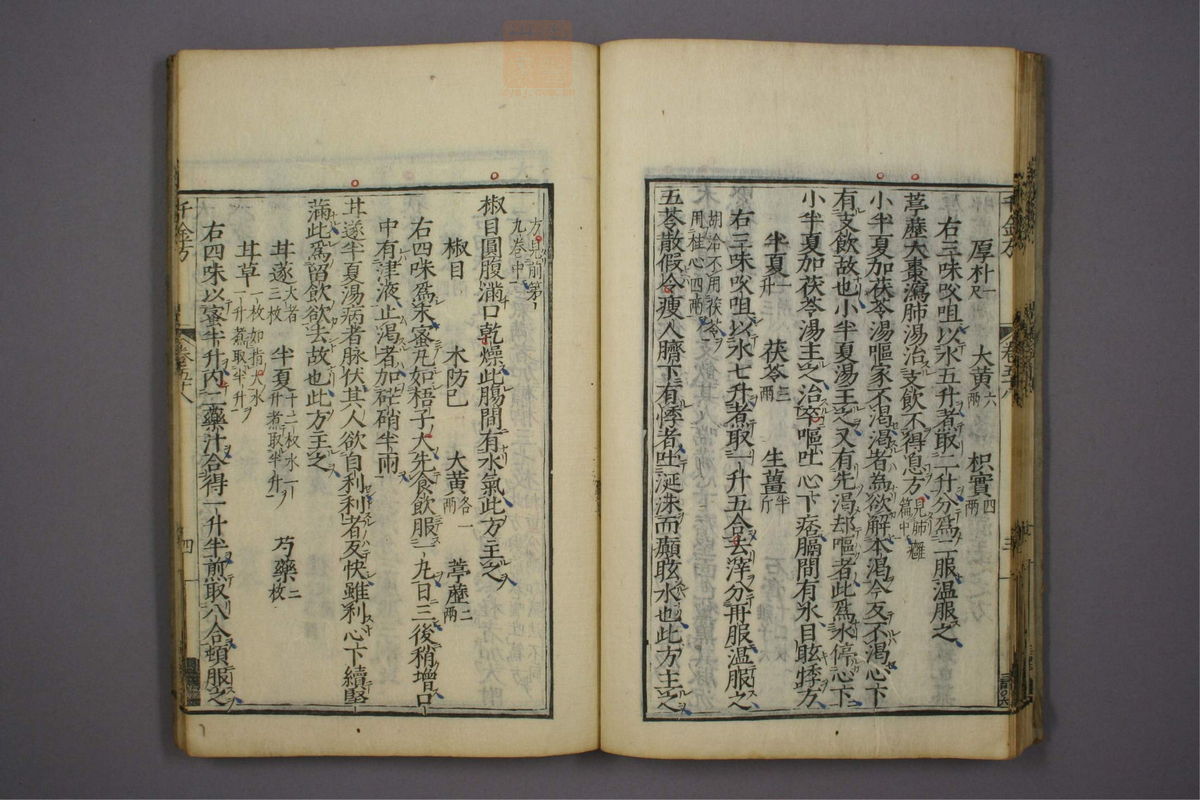 千金方 卷五十八 三
厚朴一尺 大黄六兩 枳實四兩
右三味㕮咀以水五升煮取二升分爲二服温服之
葶藶大棗瀉肺湯治支飲不得息方見肺癰篇中
小半夏加茯苓湯嘔家不渴渴者為欲解本渴今反不渴心下
有支飲故也小半夏湯主之又有先渴却嘔者此爲水停心下
小半夏加茯苓湯主之治卒嘔吐心下痞膈間有水目眩悸方
半夏一升 茯苓三兩 生薑半斤
右三味㕮咀以水七升煮取一升五合去滓分再服温服之
胡洽不用茯苓用桂心四兩
五苓散假令瘦人臍下有悸者吐涎沫而癲眩水也此方主之
方見前第九卷中
椒目圓腹滿口乾燥此腸間有水氣此方主之
椒目 木防已 大黄各一兩 葶藶二兩
右四味爲末蜜丸如梧子大先食飲服一丸日三後稍增口
中有津液止渴者加芒硝半兩
甘遂半夏湯病者脉伏其人欲自利利者反快雖利心下續堅
滿此爲留飲欲去故也此方主之
甘遂大者三枚 半夏十二枚水一升煮取半升 芍藥三枚
甘草一枚如指大水一升煮取半升
右四味以蜜半升内二藥汁合得一升半煎取八合頓服之
千金方 卷五十八 四